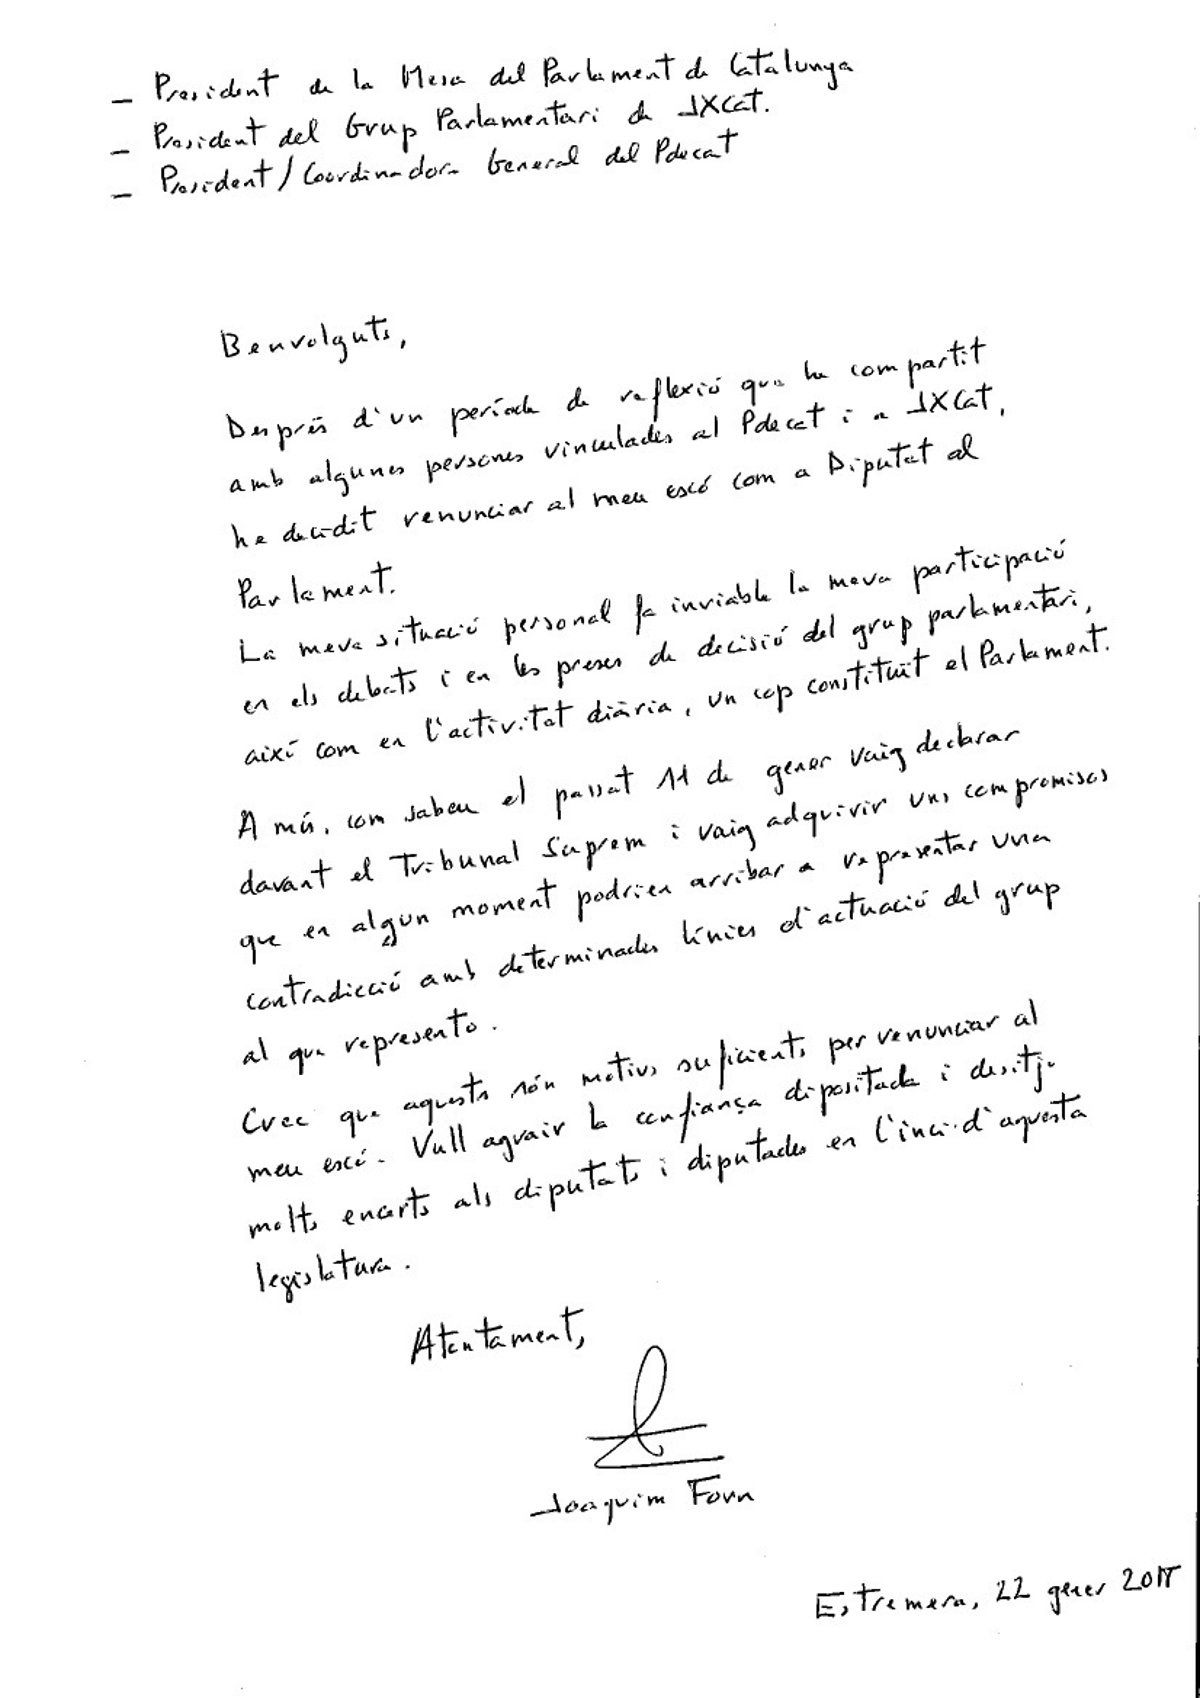 – President de la Mesa del Parlament de Catalunya
– President del Grup Parlamentari de JXCat.
– President/Coordinadora General del Pdecat
Benvolguts,
Després d'un període de reflexió que he compartit
amb algunes persones vinculades al Pdecat i a JXCat,
he decidit renunciar al meu escó com a Diputat al
Parlament.
La meva situació personal fa inviable la meva participació
en els debats i en les preses de decisió del grup parlamentari,
així com en l'activitat diària, un cop constituït el Parlament.
A més, com sabeu el passat 11 de gener vaig declarar
davant el Tribunal Suprem i vaig adquirir uns compromisos
que en algun moment podrien arribar a representar una
contradicció amb determinades línies d'actuació del grup
al que represento.
Crec que aquests són motius suficients per renunciar al
meu escó. Vull agrair la confiança dipositada i desitjo
molts encerts als diputats i diputades en l'inici d'aquesta
legislatura.
Atentament,
Joaquim Forn
Estremera, 22 gener 2018